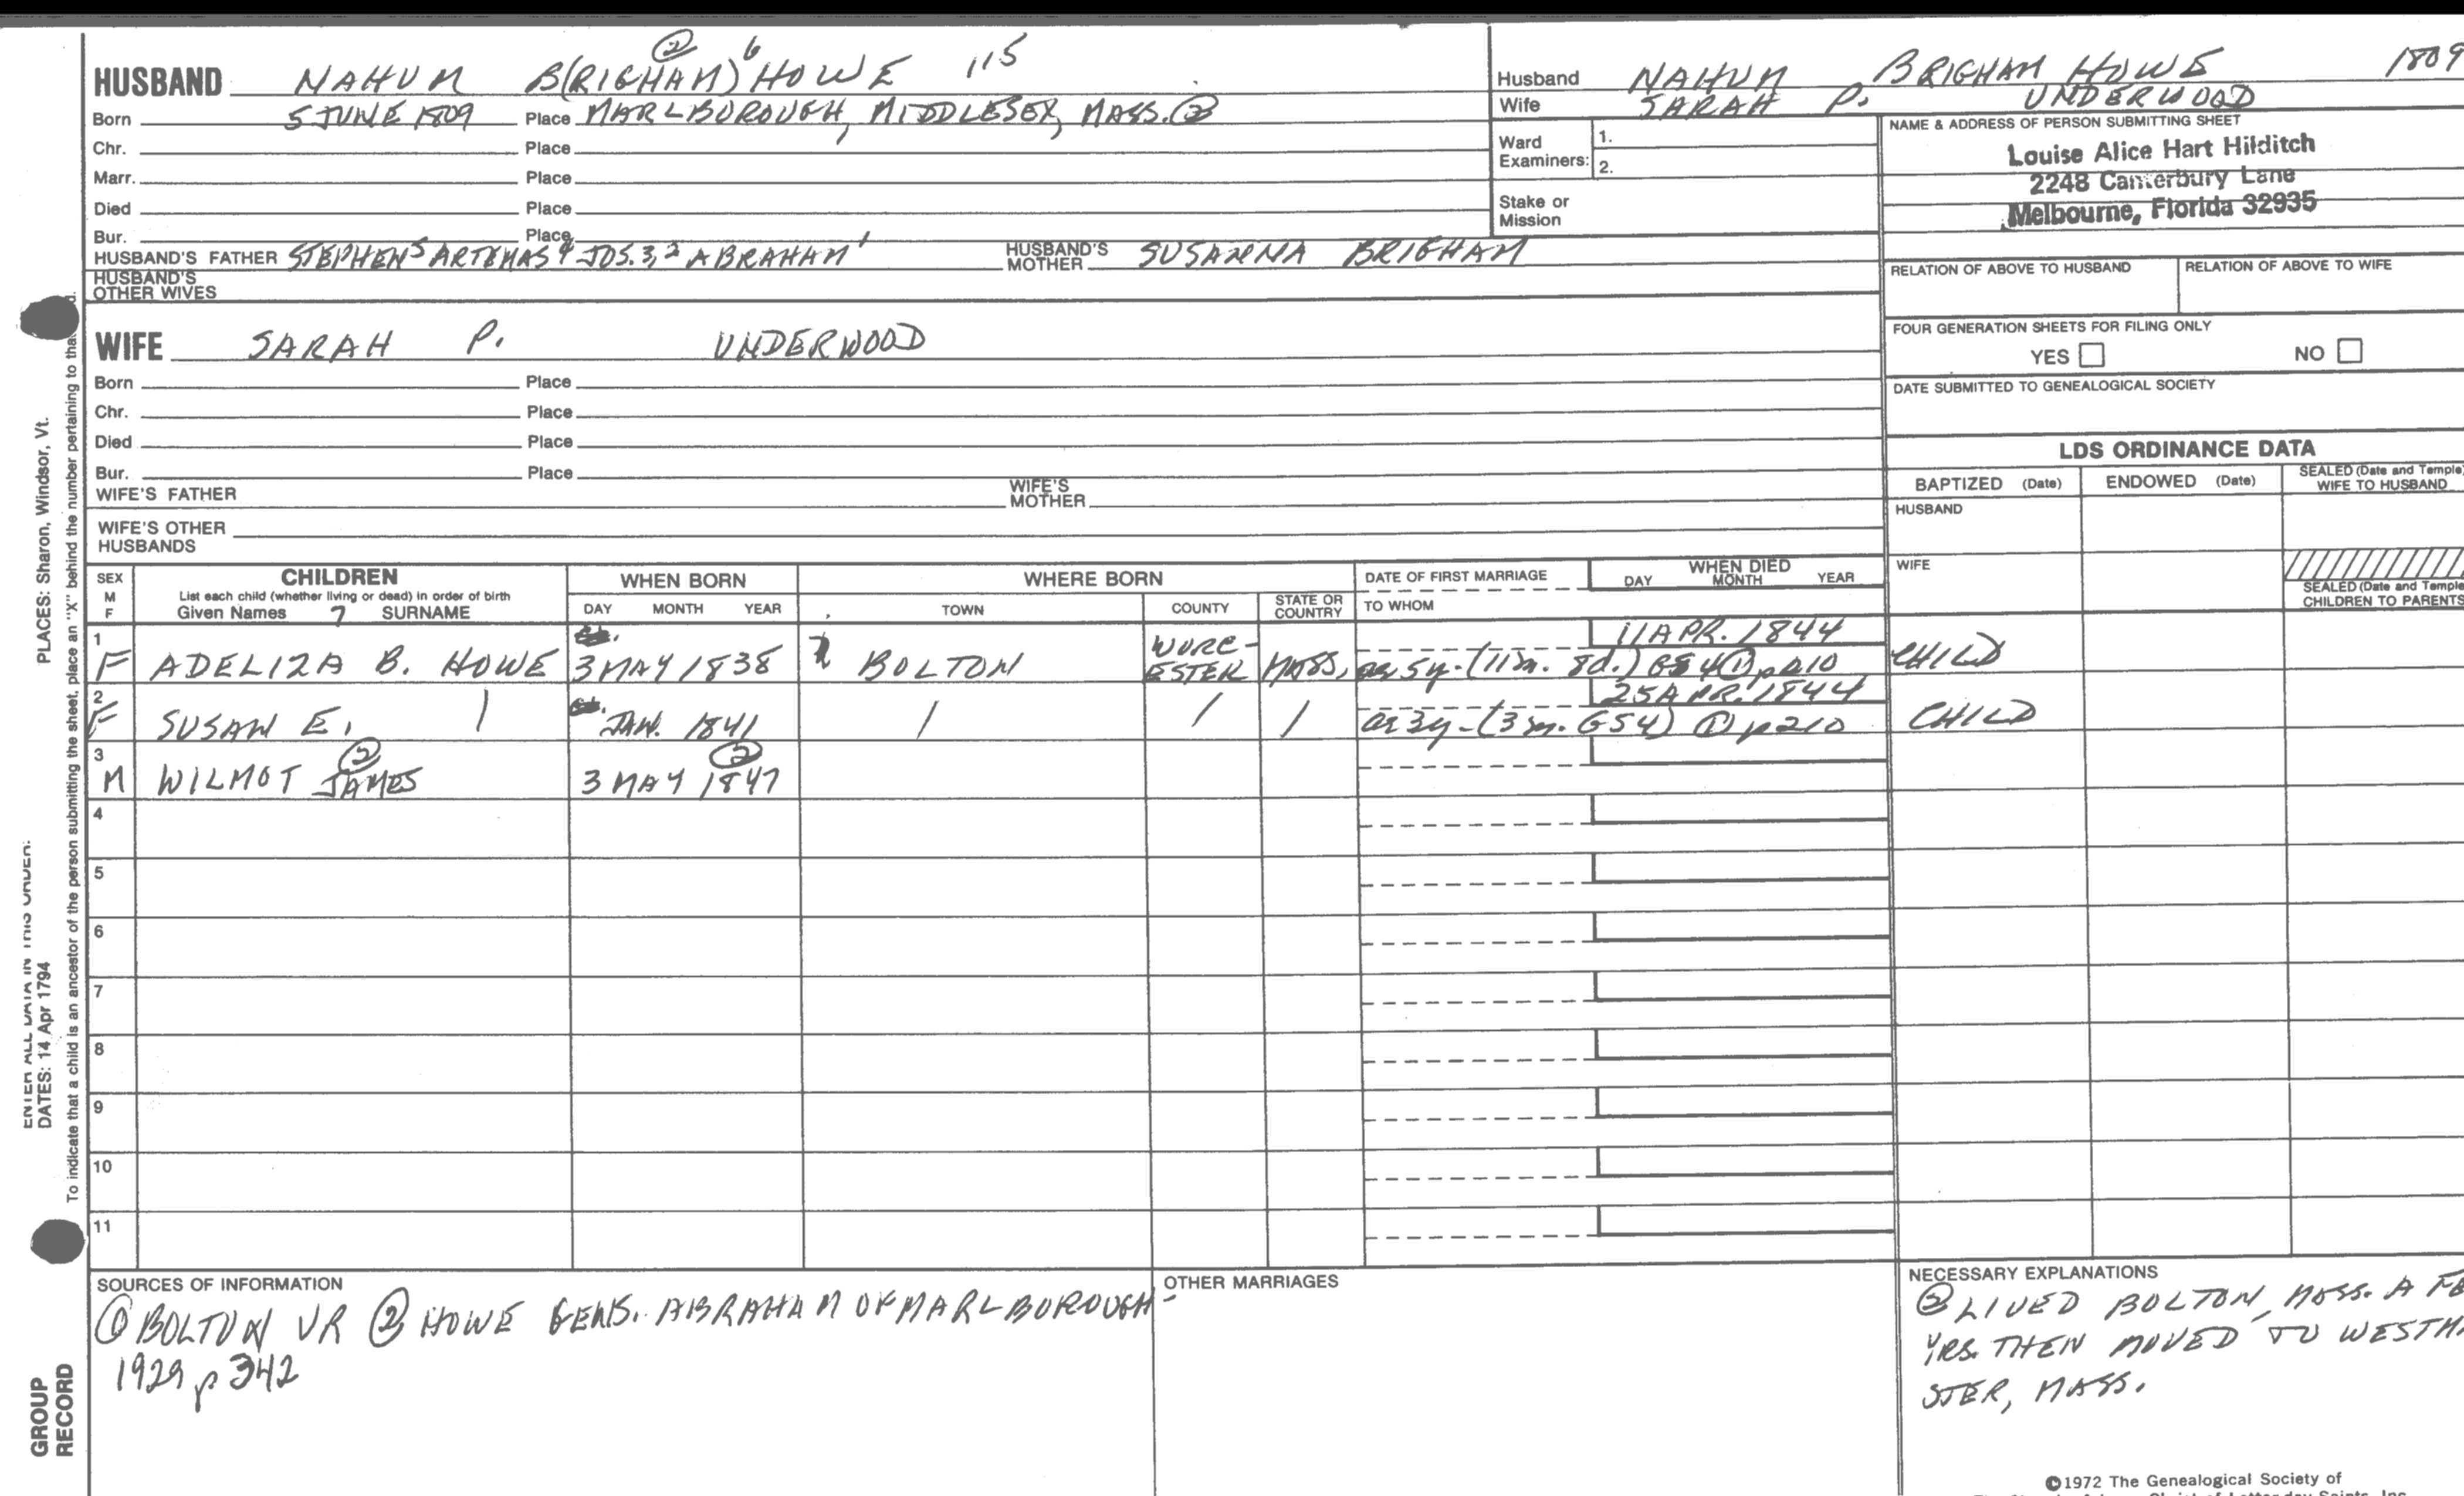 HUSBAND NAHUM B(RIGHAM) ② 6 HOWE 115
Born 5 JUNE 1809 Place MARLBOROUGH, MIDDLESEX, MASS. ②
Chr. Place
Marr. Place
Died Place
Bur. Place
HUSBAND'S FATHER STEPHEN 5 ARTEMAS 4 JOS. 3, 2 ABRAHAM 1 HUSBAND'S MOTHER SUSANNA BRIGHAM
HUSBAND'S OTHER WIVES
WIFE SARAH P. UNDERWOOD
Born Place
Chr. Place
Died Place
Bur. Place
WIFE'S FATHER WIFE'S MOTHER
WIFE'S OTHER HUSBANDS
Husband NAHUM BRIGHAM HOWE 1809
Wife SARAH P. UNDERWOOD
Ward Examiners: 1.
2.
Stake or Mission
NAME & ADDRESS OF PERSON SUBMITTING SHEET
Louise Alice Hart Hilditch
2248 Canterbury Lane
Melbourne, Florida 32935
RELATION OF ABOVE TO HUSBAND RELATION OF ABOVE TO WIFE
FOUR GENERATION SHEETS FOR FILING ONLY
YES NO
DATE SUBMITTED TO GENEALOGICAL SOCIETY
LDS ORDINANCE DATA
BAPTIZED (Date) ENDOWED (Date) SEALED (Date and Temple) WIFE TO HUSBAND
HUSBAND
WIFE
SEALED (Date and Temple) CHILDREN TO PARENTS
SEX M F CHILDREN WHEN BORN WHERE BORN DATE OF FIRST MARRIAGE WHEN DIED
List each child (whether living or dead) in order of birth
Given Names 7 SURNAME DAY MONTH YEAR TOWN COUNTY STATE OR COUNTRY TO WHOM DAY MONTH YEAR
1 F ADELIZA B. HOWE 3 MAY 1838 BOLTON WORC-ESTER MASS. 11 APR. 1844
ae 5y-(11m. 8d.) GS4 ① p210 CHILD
2 F SUSAN E. JAN. 1841 25 APR. 1844
ae 3y-(3m. GS4) ① p210 CHILD
3 M WILMOT JAMES ② 3 MAY 1847 ②
4
5
6
7
8
9
10
11
SOURCES OF INFORMATION
① BOLTON VR ② HOWE GENS. ABRAHAM OF MARLBOROUGH-
1929 p 342
OTHER MARRIAGES
NECESSARY EXPLANATIONS
② LIVED BOLTON, MASS. A FE
YRS. THEN MOVED TO WESTM
STER, MASS.
©1972 The Genealogical Society of
PLACES: Sharon, Windsor, Vt.
ENTER ALL DATA IN THIS ORDER:
DATES: 14 Apr 1794
To indicate that a child is an ancestor of the person submitting the sheet, place an "X" behind the number pertaining to that
GROUP
RECORD